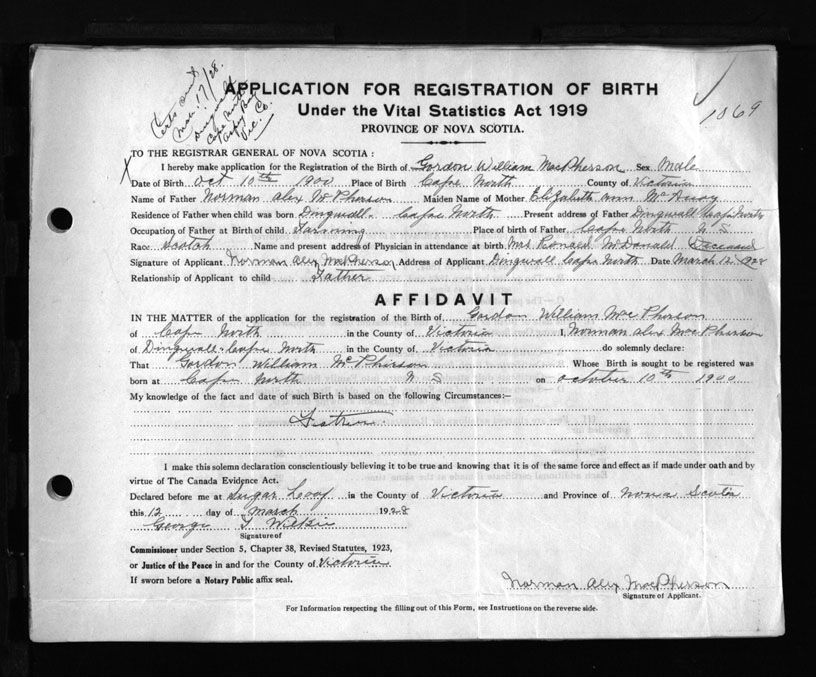 Certs sent
Mar. 17/28.
Dingwall
Cape North
Aspy Bay
Vic. Co.
APPLICATION FOR REGISTRATION OF BIRTH
Under the Vital Statistics Act 1919
1069
PROVINCE OF NOVA SCOTIA.
TO THE REGISTRAR GENERAL OF NOVA SCOTIA:
X
I hereby make application for the Registration of the Birth of Gordon William MacPherson Sex Male
Date of Birth Oct 10th 1900 Place of Birth Cape North County of Victoria
Name of Father Norman Alex McPherson Maiden Name of Mother Elizabeth Ann
Residence of Father when child was born Dingwall Cape North Present address of Father Dingwall Cape North
Occupation of Father at Birth of Child Farming Place of birth of Father Cape North N S
Race Scotch Name and present address of Physician in attendance at birth Mrs Ronald McDonald Deceased
Signature of Applicant Norman Alex MacPherson Address of Applicant Dingwall Cape North Date March 12 1928
Relationship of Applicant to child Father
AFFIDAVIT
IN THE MATTER of the application for the registration of the Birth of Gordon William MacPherson
of Cape North in the County of Victoria I, Norman Alex MacPherson
of Dingwall Cape North in the County of Victoria do solemnly declare:
That Gordon William McPherson Whose Birth is sought to be registered was
born at Cape North N S on October 10th 1900
My knowledge of the fact and date of such Birth is based on the following Circumstances:—
Father
I make this solemn declaration conscientiously believing it to be true and knowing that it is of the same force and effect as if made under oath and by
virtue of The Canada Evidence Act.
Declared before me at Sugar Loaf in the County of Victoria and Province of Nova Scotia
this 12 day of March 1928
George T Wilkie
Signature of
Commissioner under Section 5, Chapter 38, Revised Statutes, 1923,
or Justice of the Peace in and for the County of Victoria
If sworn before a Notary Public affix seal.
Norman Alex MacPherson
Signature of Applicant.
For Information respecting the filling out of this Form, see Instructions on the reverse side.